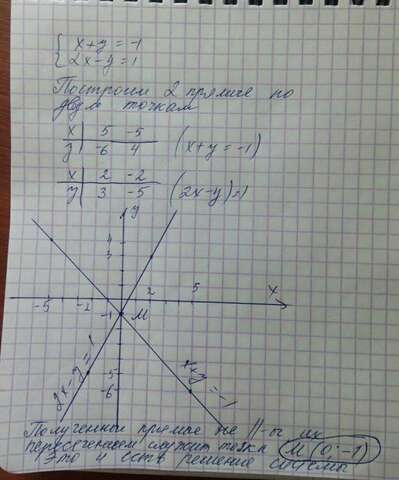 { x+y = -1
{ 2x-y = 1
Построим 2 прямые по
двум точкам
x | 5 | -5
y | -6 | 4 (x+y = -1)
x | 2 | -2
y | 3 | -5 (2x-y)=1
y
4
3
-5 -2 2 5 x
-1 M
-5
-6
2x-y=1
x+y=-1
Полученные прямые не ||-ы их
пересечением служит точка M(0;-1)
Это и есть решение системы